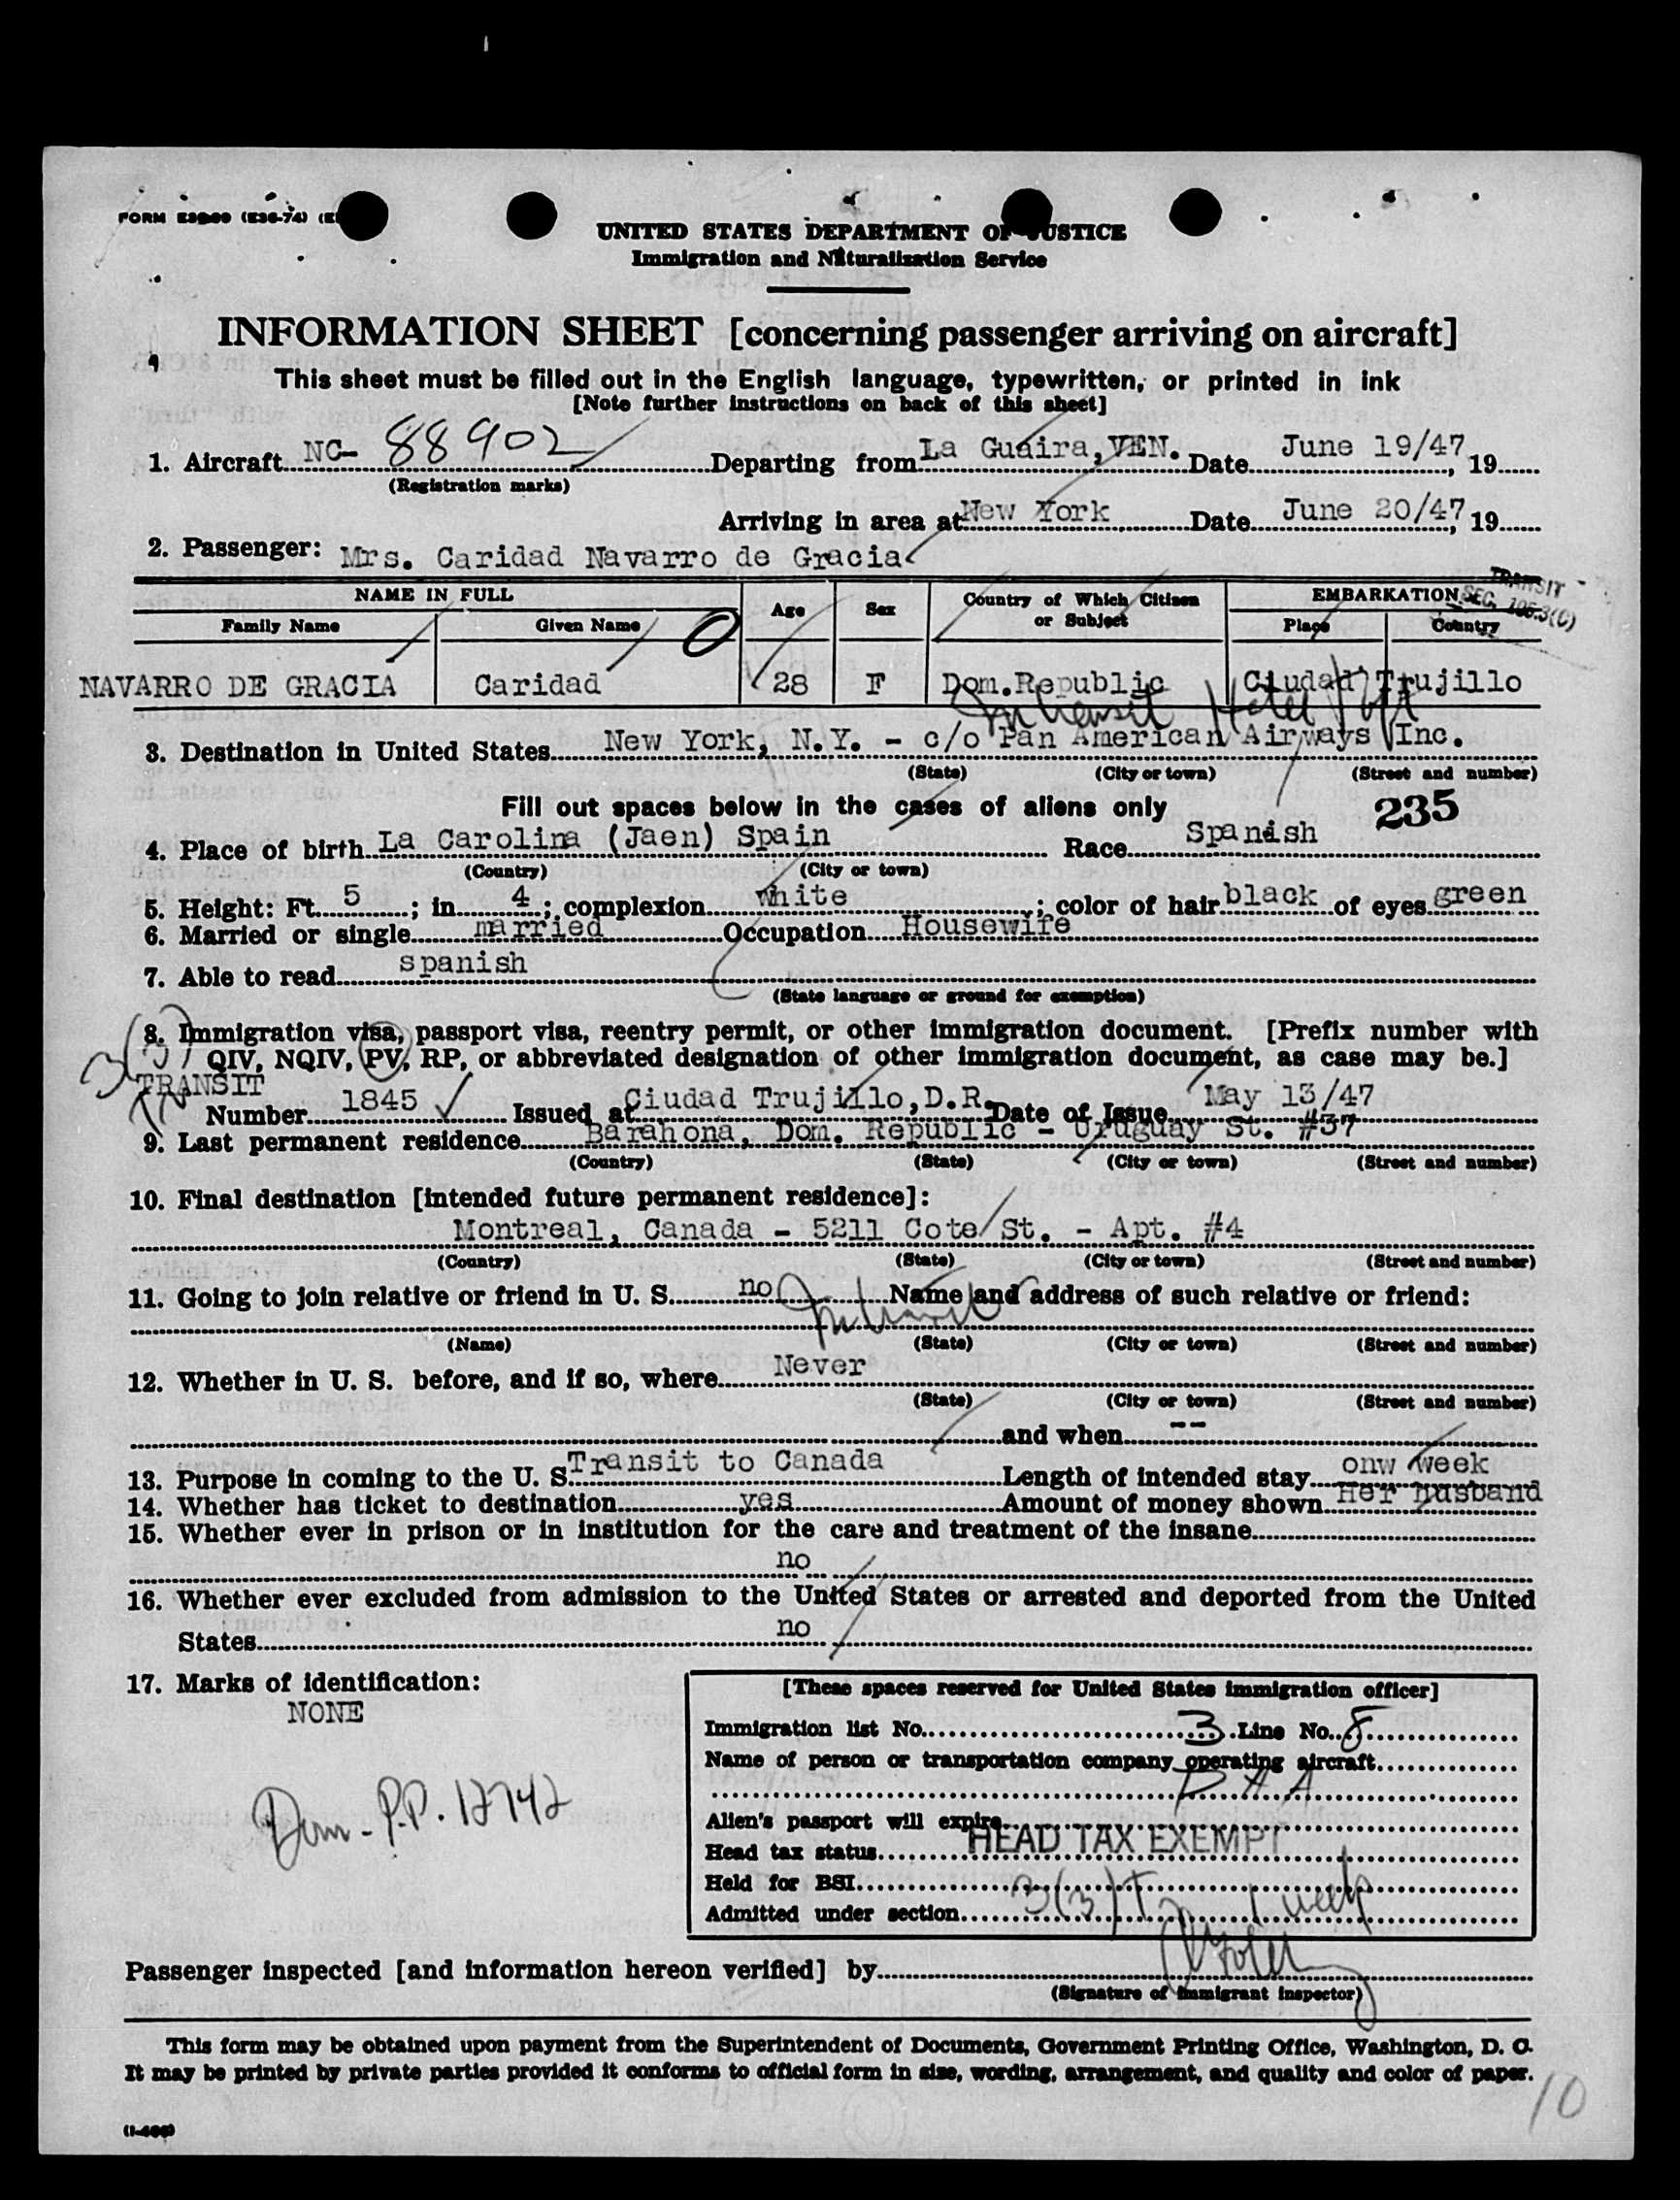 UNITED STATES DEPARTMENT OF JUSTICE
Immigration and Naturalization Service
INFORMATION SHEET [concerning passenger arriving on aircraft]
This sheet must be filled out in the English language, typewritten, or printed in ink
[Note further instructions on back of this sheet]
1. Aircraft NC- 88902 Departing from La Guaira, VEN. Date June 19/47, 19
(Registration marks)
Arriving in area at New York Date June 20/47, 19
2. Passenger: Mrs. Caridad Navarro de Gracia
NAME IN FULL Age Sex Country of Which Citizen or Subject EMBARKATION
TRANSIT SEC. 105.3(C)
Family Name Given Name Place Country
NAVARRO DE GRACIA Caridad 28 F Dom.Republic Ciudad Trujillo
In transit Hotel
3. Destination in United States New York, N.Y. - c/o Pan American Airways Inc.
(State) (City or town) (Street and number)
Fill out spaces below in the cases of aliens only 235
4. Place of birth La Carolina (Jaen) Spain Race Spanish
(Country) (City or town)
5. Height: Ft. 5 ; in. 4 ; complexion white ; color of hair black of eyes green
6. Married or single married Occupation Housewife
7. Able to read spanish
(State language or ground for exemption)
8. Immigration visa, passport visa, reentry permit, or other immigration document. [Prefix number with
3(3) QIV, NQIV, PV, RP, or abbreviated designation of other immigration document, as case may be.]
TRANSIT
Number 1845 Issued at Ciudad Trujillo, D.R. Date of Issue May 13/47
9. Last permanent residence Barahona, Dom. Republic - Uruguay St. #37
(Country) (State) (City or town) (Street and number)
10. Final destination [intended future permanent residence]:
Montreal, Canada - 5211 Cote St. - Apt. #4
(Country) (State) (City or town) (Street and number)
11. Going to join relative or friend in U. S. no Name and address of such relative or friend:
In transit
(Name) (State) (City or town) (Street and number)
12. Whether in U. S. before, and if so, where Never
(State) (City or town) (Street and number)
and when --
13. Purpose in coming to the U. S. Transit to Canada Length of intended stay onw week
14. Whether has ticket to destination yes Amount of money shown Her husband
15. Whether ever in prison or in institution for the care and treatment of the insane
no
16. Whether ever excluded from admission to the United States or arrested and deported from the United
States no
17. Marks of identification:
NONE
Dom. P.P. 12742
[These spaces reserved for United States immigration officer]
Immigration list No. 3 Line No. 8
Name of person or transportation company operating aircraft
P A A
Alien's passport will expire
Head tax status HEAD TAX EXEMPT
Held for BSI
Admitted under section 3(3) T 1 week
Passenger inspected [and information hereon verified] by
(Signature of immigrant inspector)
This form may be obtained upon payment from the Superintendent of Documents, Government Printing Office, Washington, D. C.
It may be printed by private parties provided it conforms to official form in size, wording, arrangement, and quality and color of paper.
10